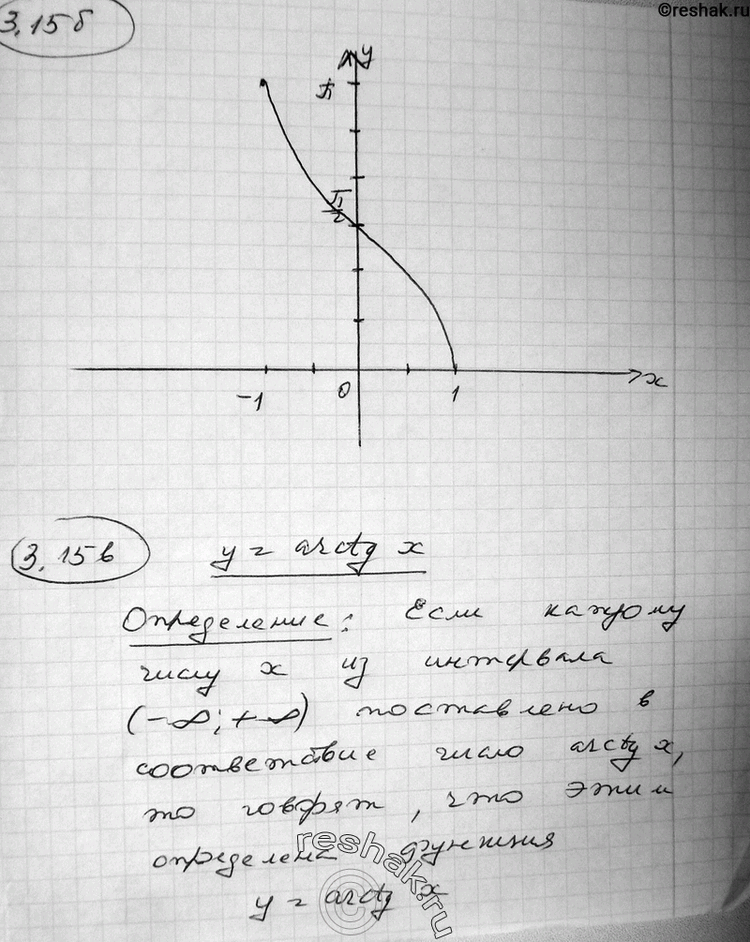 ©reshak.ru
3.15б
y
π
π/2
-1
0
1
x
3.15в
y = arctg x
Определение: Если каждому
числу x из интервала
(-∞; +∞) поставлено в
соответствие число arctg x,
то говорят, что этим
определена функция
y = arctg x
reshak.ru
©